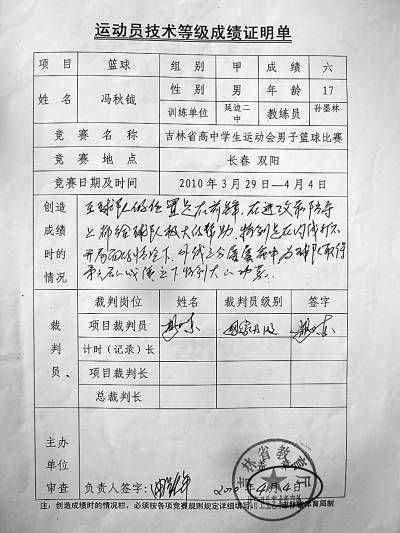 运动员技术等级成绩证明单
项目 篮球 组别 甲 成绩 六
姓名 冯秋钺 性别 男 年龄 17
训练单位 延边二中 教练员 孙墨林
竞赛名称 吉林省高中学生运动会男子篮球比赛
竞赛地点 长春 双阳
竞赛日期及时间 2010年3月29日—4月4日
创造成绩时的情况
在球队的位置是在前锋,在进攻和防守
上都给球队极大的帮助,特别是在内线打不
开局面的情况下,外线三分屡屡命中,为球队取得
裁判员
裁判岗位 姓名 裁判员级别 签字
项目裁判员 国家
计时(记录)长
项目裁判长
总裁判长
主办单位审查
负责人签字:
吉林省教育厅
2010年4月4日
注:创造成绩时的情况栏,必须按各项竞赛规则规定详细填写
教育局制